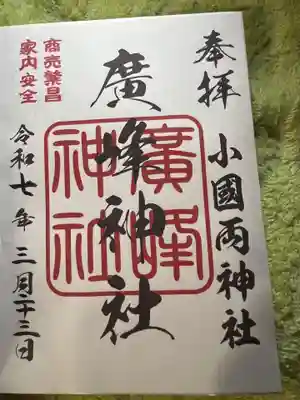 奉拝
小國両神社
廣峰神社
廣峰
神社
商売繁昌
家内安全
令和七年三月二十三日